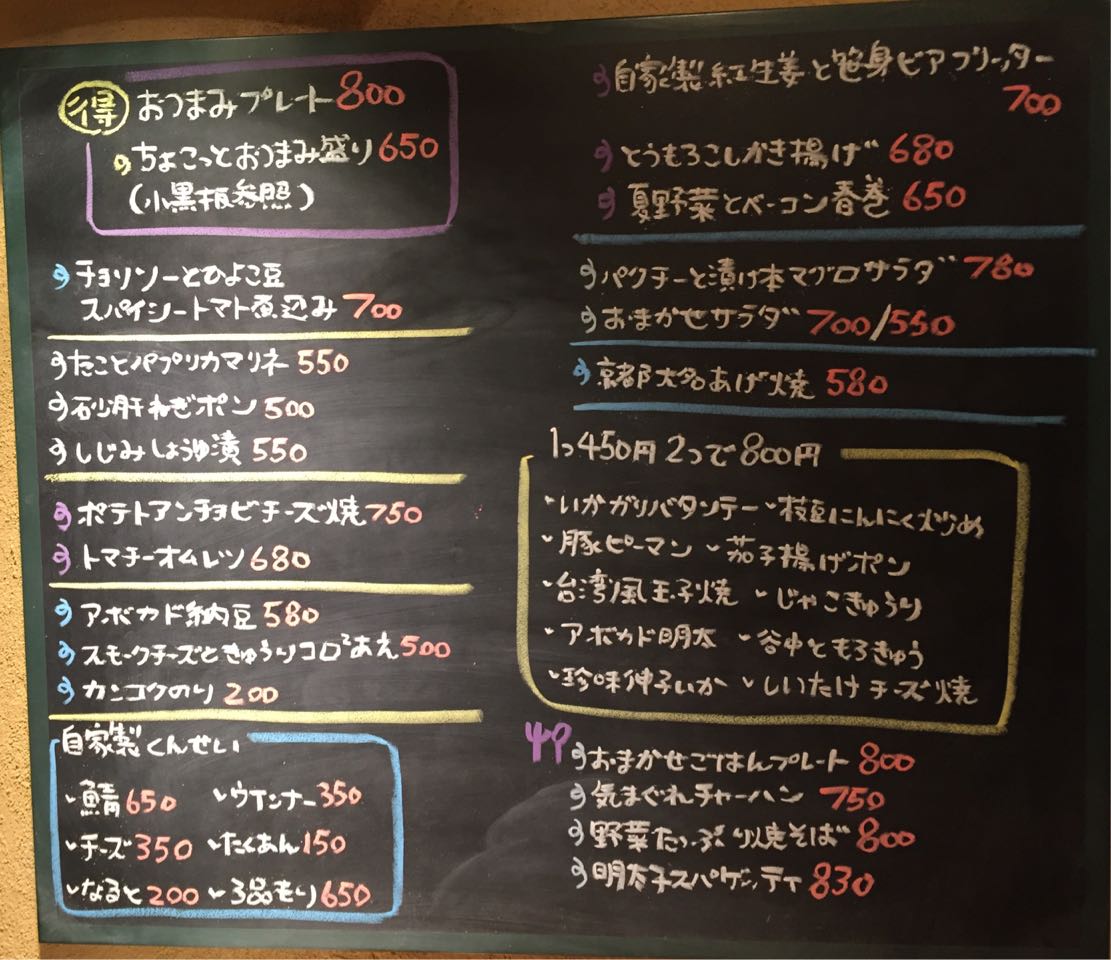 得 おつまみプレート 800
ちょこっとおつまみ盛り 650
(小黒板参照)
チョリソーとひよこ豆
スパイシートマト煮込み 700
たことパプリカマリネ 550
砂肝ねぎポン 500
しじみしょうゆ漬 550
ポテトアンチョビチーズ焼 750
トマチーオムレツ 680
アボカド納豆 580
スモークチーズときゅうりコロ²あえ 500
カンコクのり 200
自家製くんせい
鯖 650 ウインナー 350
チーズ 350 たくあん 150
なると 200 3品もり 650
自家製紅生姜と笹身ビアフリッター
700
とうもろこしかき揚げ 680
夏野菜とベーコン春巻 650
パクチーと漬け本マグロサラダ 780
おまかせサラダ 700/550
京都大名あげ焼 580
1つ450円 2つで800円
いかガリバタンテー 枝豆にんにく炒め
豚ピーマン 茄子揚げポン
台湾風玉子焼 じゃこきゅうり
アボカド明太 谷中ともろきゅう
珍味伸子いか しいたけチーズ焼
おまかせごはんプレート 800
気まぐれチャーハン 750
野菜たっぷり焼そば 800
明太子スパゲッティ 830